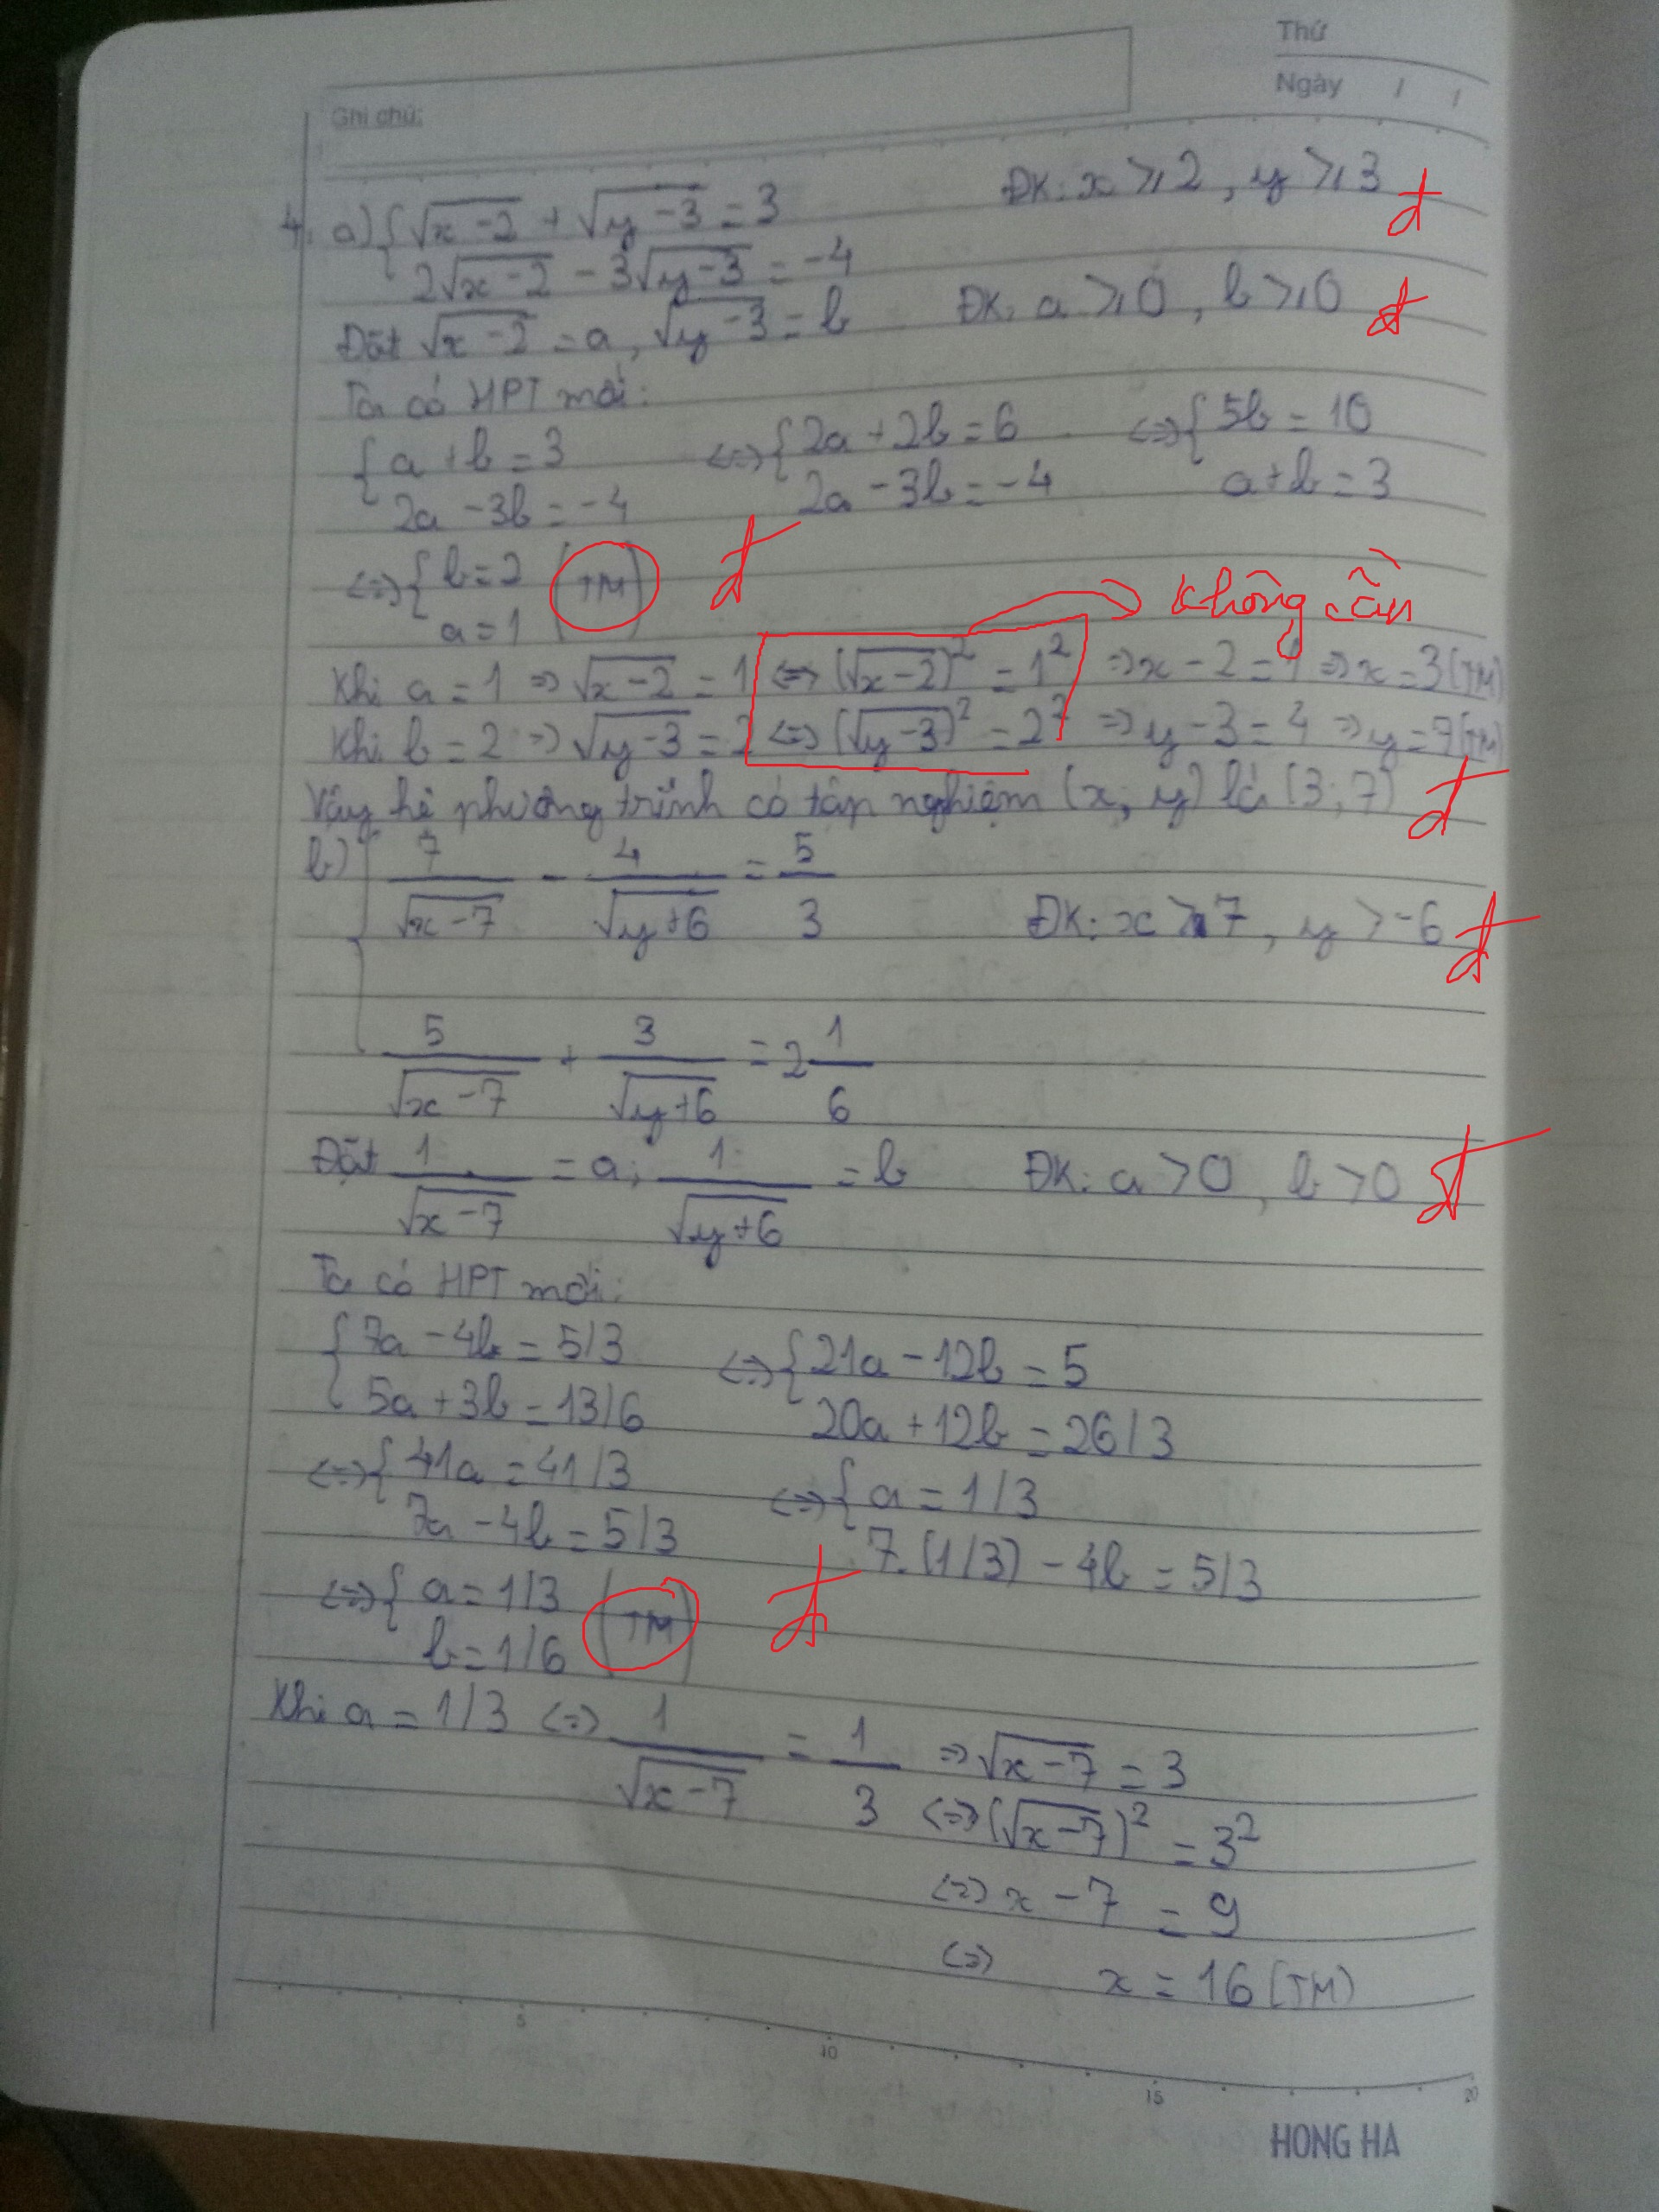 Thứ
Ngày / /
Ghi chú:
4. a) { √(x-2) + √(y-3) = 3 ĐK: x ⩾ 2, y ⩾ 3 đ
2√(x-2) - 3√(y-3) = -4
Đặt √(x-2) = a, √(y-3) = b ĐK: a ⩾ 0, b ⩾ 0 đ
Ta có HPT mới:
{ a + b = 3 <=> { 2a + 2b = 6 <=> { 5b = 10
2a - 3b = -4 2a - 3b = -4 a + b = 3
<=> { b = 2 (TM) đ
a = 1
không cần
Khi a = 1 => √(x-2) = 1 <=> (√(x-2))² = 1² => x - 2 = 1 => x = 3 (TM)
Khi b = 2 => √(y-3) = 2 <=> (√(y-3))² = 2² => y - 3 = 4 => y = 7 (TM)
Vậy hệ phương trình có tập nghiệm (x; y) là (3; 7) đ
b) { 7/√(x-7) - 4/√(y+6) = 5/3 ĐK: x > 7, y > -6 đ
5/√(x-7) + 3/√(y+6) = 2 1/6
Đặt 1/√(x-7) = a; 1/√(y+6) = b ĐK: a > 0, b > 0 đ
Ta có HPT mới:
{ 7a - 4b = 5/3 <=> { 21a - 12b = 5
5a + 3b = 13/6 20a + 12b = 26/3
<=> { 41a = 41/3 <=> { a = 1/3
7a - 4b = 5/3 7.(1/3) - 4b = 5/3
<=> { a = 1/3 (TM) đ
b = 1/6
Khi a = 1/3 <=> 1/√(x-7) = 1/3 => √(x-7) = 3
<=> (√(x-7))² = 3²
<=> x - 7 = 9
<=> x = 16 (TM)
5 10 15 20
HONG HA